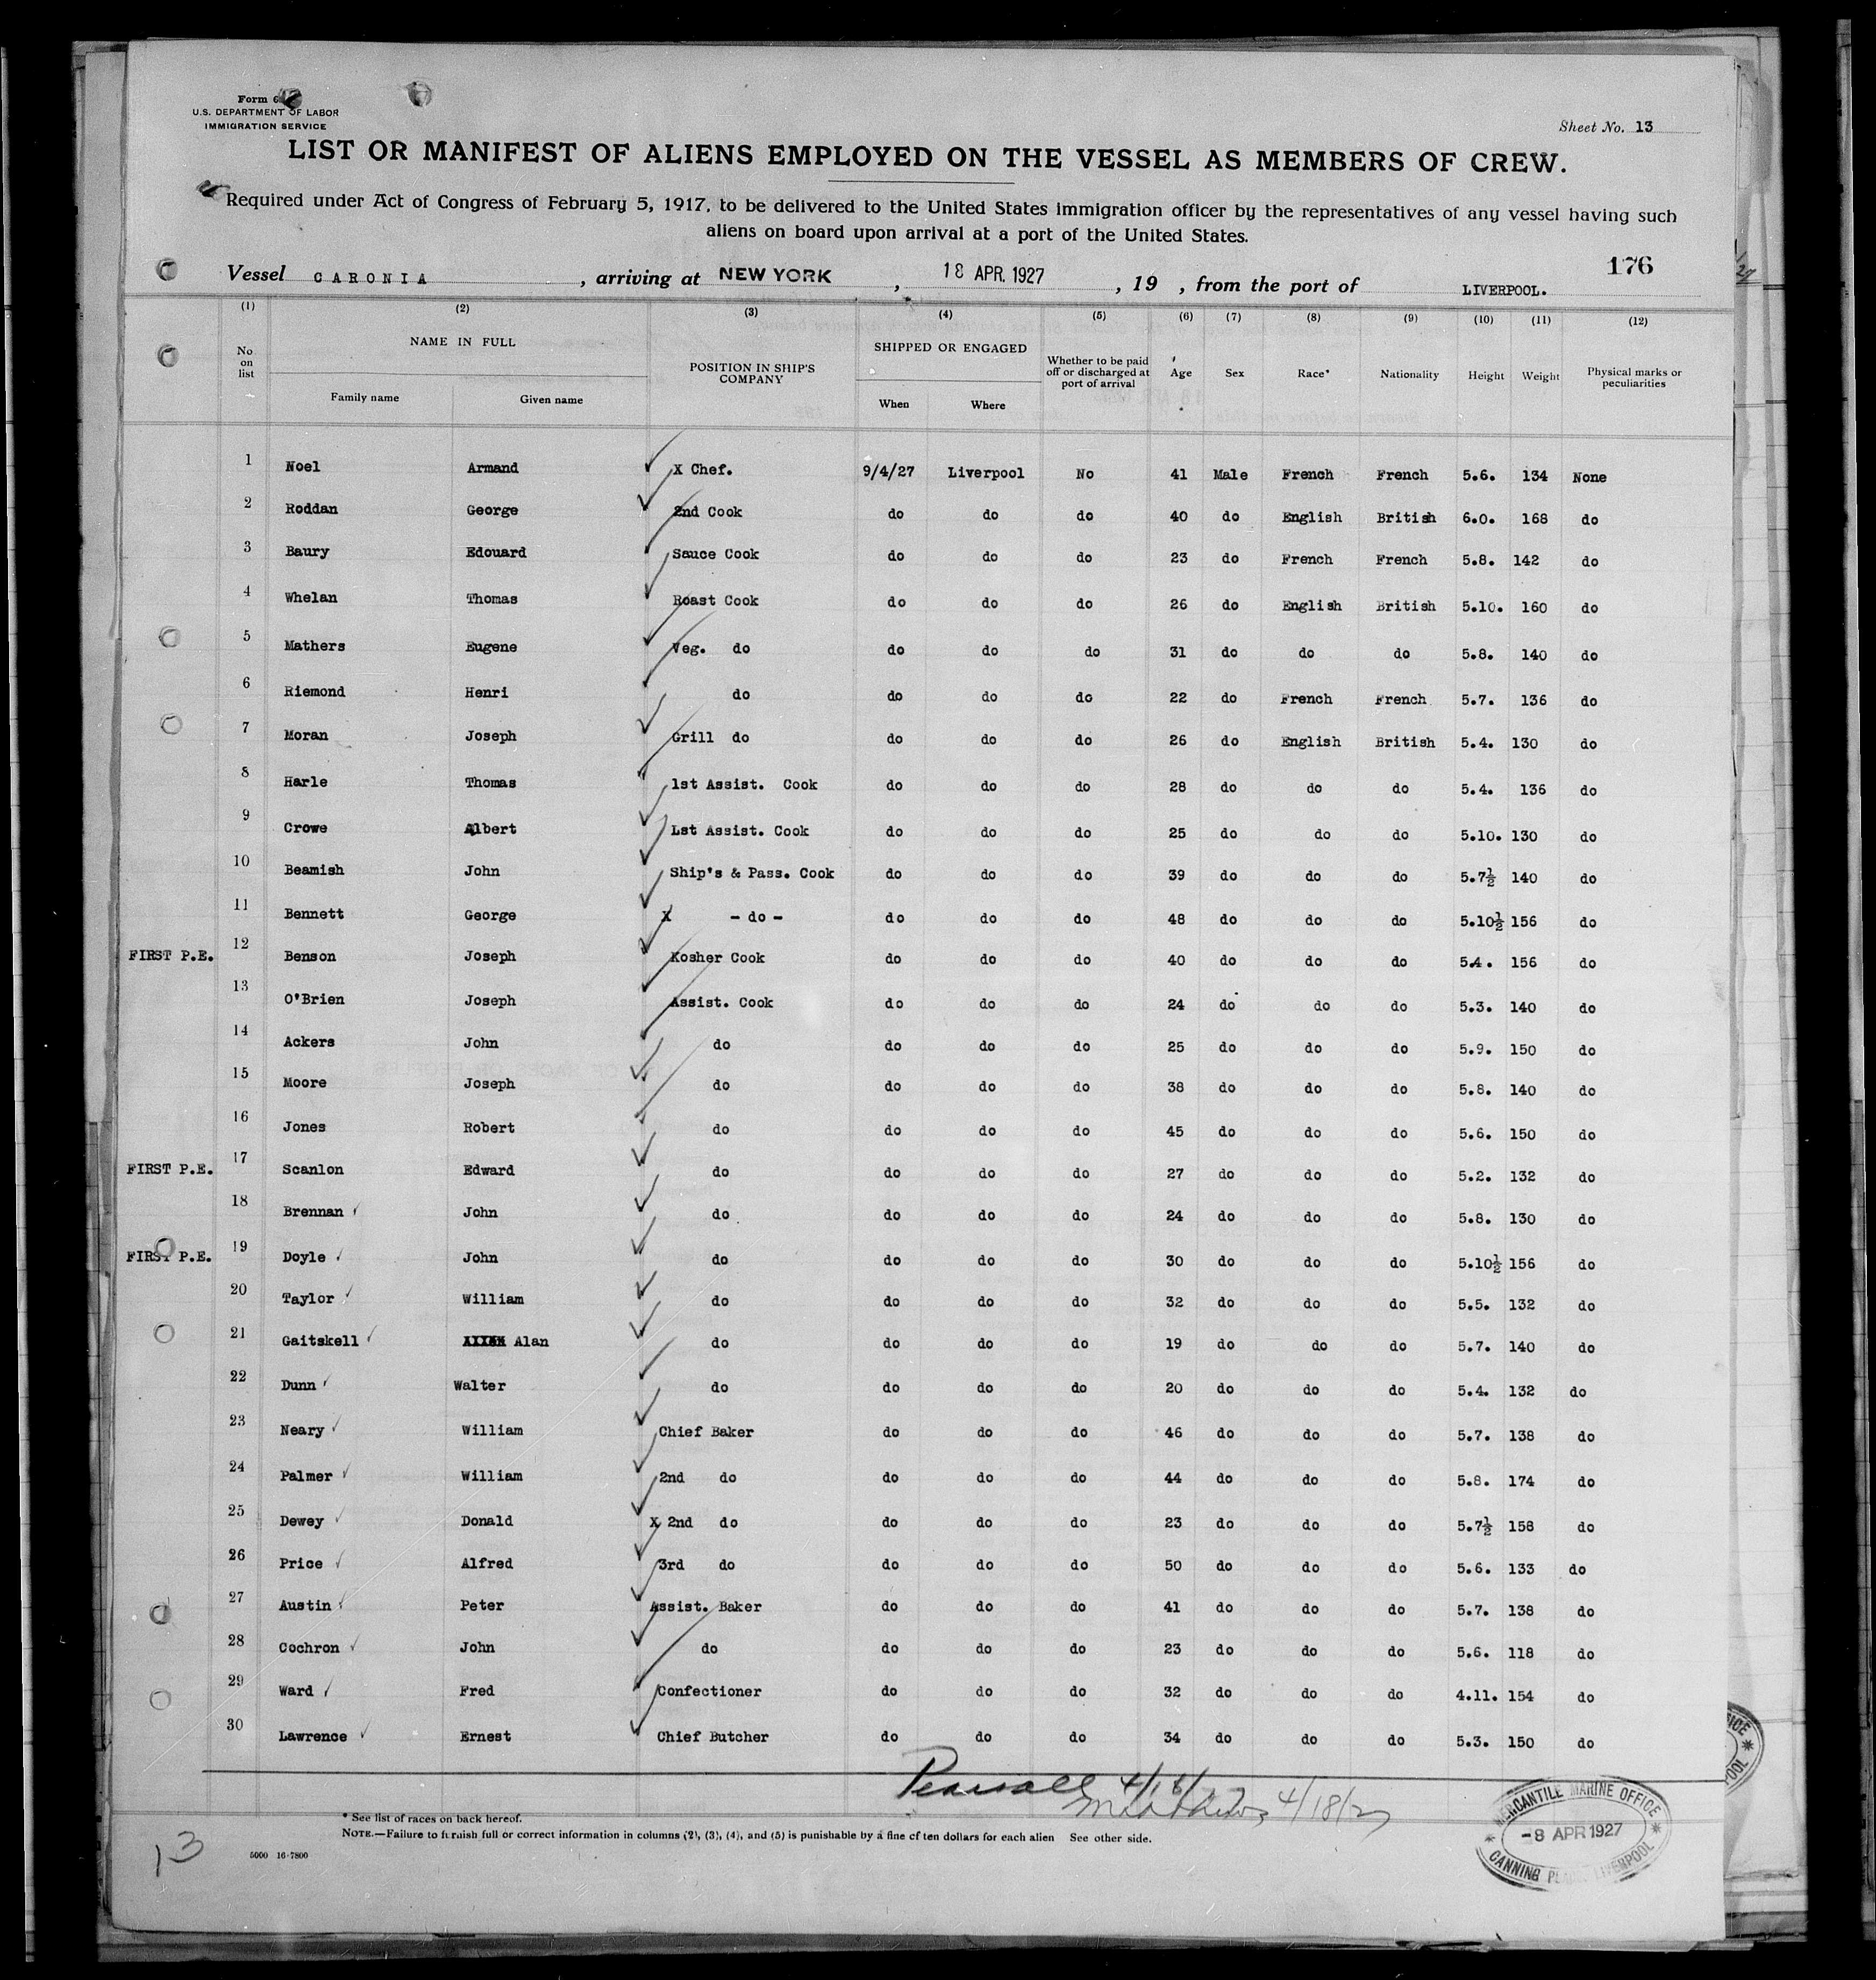 Form 6
U.S. DEPARTMENT OF LABOR
IMMIGRATION SERVICE
Sheet No. 13
LIST OR MANIFEST OF ALIENS EMPLOYED ON THE VESSEL AS MEMBERS OF CREW.
Required under Act of Congress of February 5, 1917, to be delivered to the United States immigration officer by the representatives of any vessel having such
aliens on board upon arrival at a port of the United States.
176
Vessel CARONIA, arriving at NEW YORK, 18 APR. 1927, 19 , from the port of LIVERPOOL.
(1) (2) (3) (4) (5) (6) (7) (8) (9) (10) (11) (12)
No on list NAME IN FULL Family name Given name POSITION IN SHIP'S COMPANY SHIPPED OR ENGAGED When Where Whether to be paid off or discharged at port of arrival Age Sex Race* Nationality Height Weight Physical marks or peculiarities
1 Noel Armand X Chef. 9/4/27 Liverpool No 41 Male French French 5.6. 134 None
2 Roddan George 2nd Cook do do do 40 do English British 6.0. 168 do
3 Baury Edouard Sauce Cook do do do 23 do French French 5.8. 142 do
4 Whelan Thomas Roast Cook do do do 26 do English British 5.10. 160 do
5 Mathers Eugene Veg. do do do do 31 do do do 5.8. 140 do
6 Riemond Henri do do do do 22 do French French 5.7. 136 do
7 Moran Joseph Grill do do do do 26 do English British 5.4. 130 do
8 Harle Thomas 1st Assist. Cook do do do 28 do do do 5.4. 136 do
9 Crowe Albert Lst Assist. Cook do do do 25 do do do 5.10. 130 do
10 Beamish John Ship's & Pass. Cook do do do 39 do do do 5.7½ 140 do
11 Bennett George X - do - do do do 48 do do do 5.10½ 156 do
FIRST P.E. 12 Benson Joseph Kosher Cook do do do 40 do do do 5.4. 156 do
13 O'Brien Joseph Assist. Cook do do do 24 do do do 5.3. 140 do
14 Ackers John do do do do 25 do do do 5.9. 150 do
15 Moore Joseph do do do do 38 do do do 5.8. 140 do
16 Jones Robert do do do do 45 do do do 5.6. 150 do
FIRST P.E. 17 Scanlon Edward do do do do 27 do do do 5.2. 132 do
18 Brennan John do do do do 24 do do do 5.8. 130 do
FIRST P.E. 19 Doyle John do do do do 30 do do do 5.10½ 156 do
20 Taylor William do do do do 32 do do do 5.5. 132 do
21 Gaitskell Alan do do do do 19 do do do 5.7. 140 do
22 Dunn Walter do do do do 20 do do do 5.4. 132 do
23 Neary William Chief Baker do do do 46 do do do 5.7. 138 do
24 Palmer William 2nd do do do do 44 do do do 5.8. 174 do
25 Dewey Donald X 2nd do do do do 23 do do do 5.7½ 158 do
26 Price Alfred 3rd do do do do 50 do do do 5.6. 133 do
27 Austin Peter Assist. Baker do do do 41 do do do 5.7. 138 do
28 Cochron John do do do do 23 do do do 5.6. 118 do
29 Ward Fred Confectioner do do do 32 do do do 4.11. 154 do
30 Lawrence Ernest Chief Butcher do do do 34 do do do 5.3. 150 do
Pearsall 4/18/27
4/18/27
* See list of races on back hereof.
NOTE.—Failure to furnish full or correct information in columns (2), (3), (4), and (5) is punishable by a fine of ten dollars for each alien See other side.
5000 16-7800
13
MERCANTILE MARINE OFFICE
-8 APR 1927
CANNING PLACE LIVERPOOL